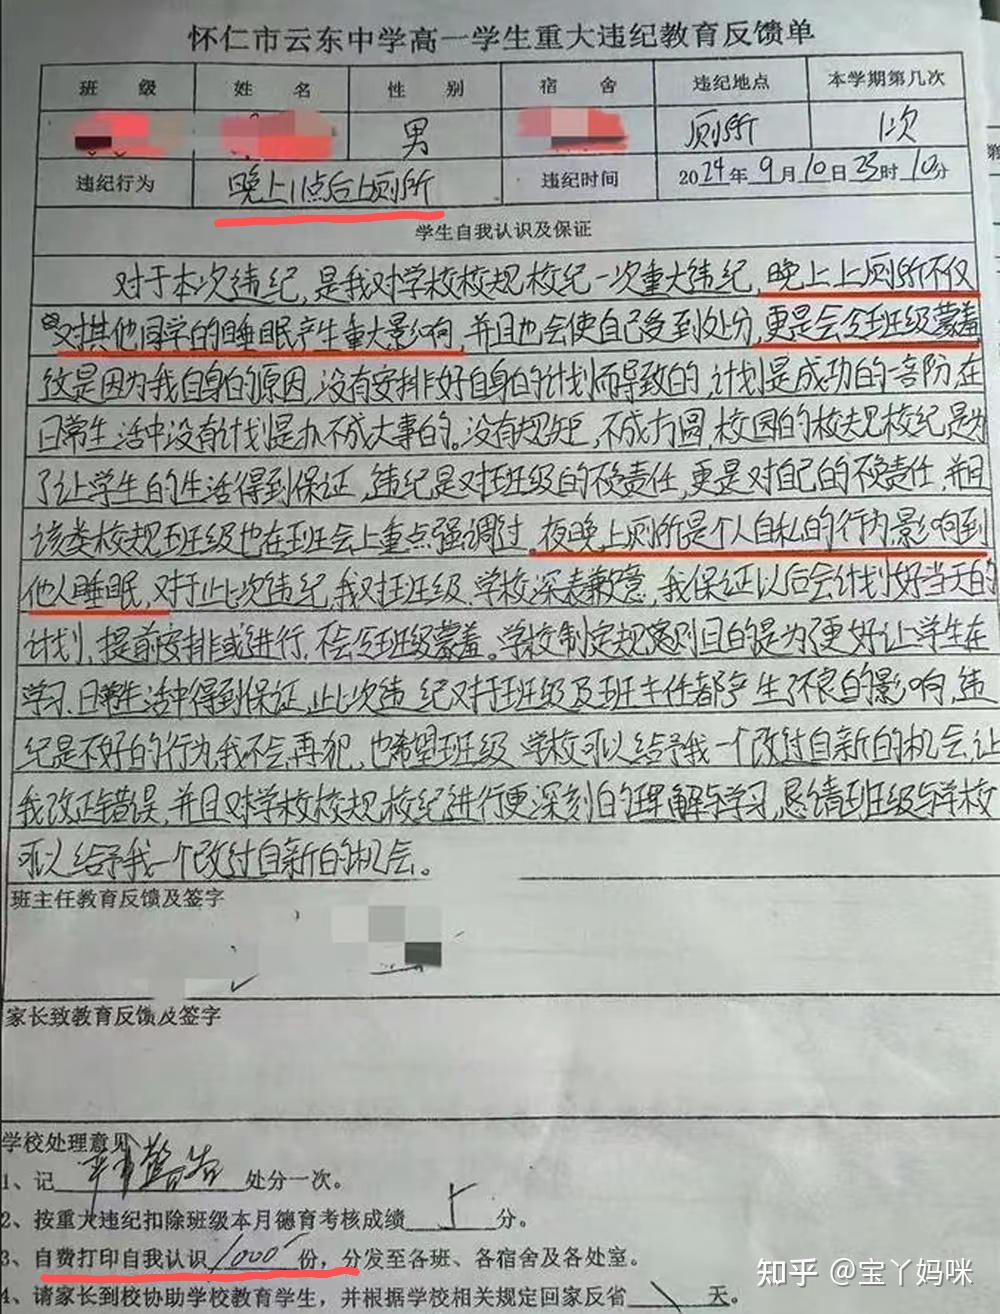 怀仁市云东中学高一学生重大违纪教育反馈单
班 级 姓 名 性 别 宿 舍 违纪地点 本学期第几次
男 厕所 1次
违纪行为 晚上11点后上厕所 违纪时间 2024年9月10日23时10分
学生自我认识及保证
对于本次违纪,是我对学校校规校纪一次重大违纪,晚上上厕所不仅
对其他同学的睡眠产生重大影响,并且也会使自己受到处分,更是会令班级蒙羞
这是因为我自身的原因,没有安排好自身的计划而导致的,计划是成功的一部阶,在
日常生活中没有计划是办不成大事的。没有规矩,不成方圆,校园的校规校纪是为
了让学生的生活得到保证,违纪是对班级的不负责任,更是对自己的不负责任,并且
该类校规班级也在班会上重点强调过,夜晚上厕所是个人自私的行为,影响到
他人睡眠,对于此次违纪,我对班级、学校深表歉意,我保证以后会计划好当天的
计划,提前安排或进行,不会令班级蒙羞。学校制定规章原则目的是为了更好让学生在
学习、日常生活中得到保证,此次违纪对于班级及班主任都产生了不良的影响,违
纪是不好的行为,我不会再犯,也希望班级、学校可以给予我一个改过自新的机会,让
我改正错误,并且对学校校规校纪进行更深刻的理解与学习,恳请班级与学校
可以给予我一个改过自新的机会。
班主任教育反馈及签字
家长致教育反馈及签字
学校处理意见
1、记 严重警告 处分一次。
2、按重大违纪扣除班级本月德育考核成绩 5 分。
3、自费打印自我认识 1000 份,分发至各班、各宿舍及各处室。
4、请家长到校协助学校教育学生,并根据学校相关规定回家反省 \ 天。
第
知乎 @宝丫妈咪